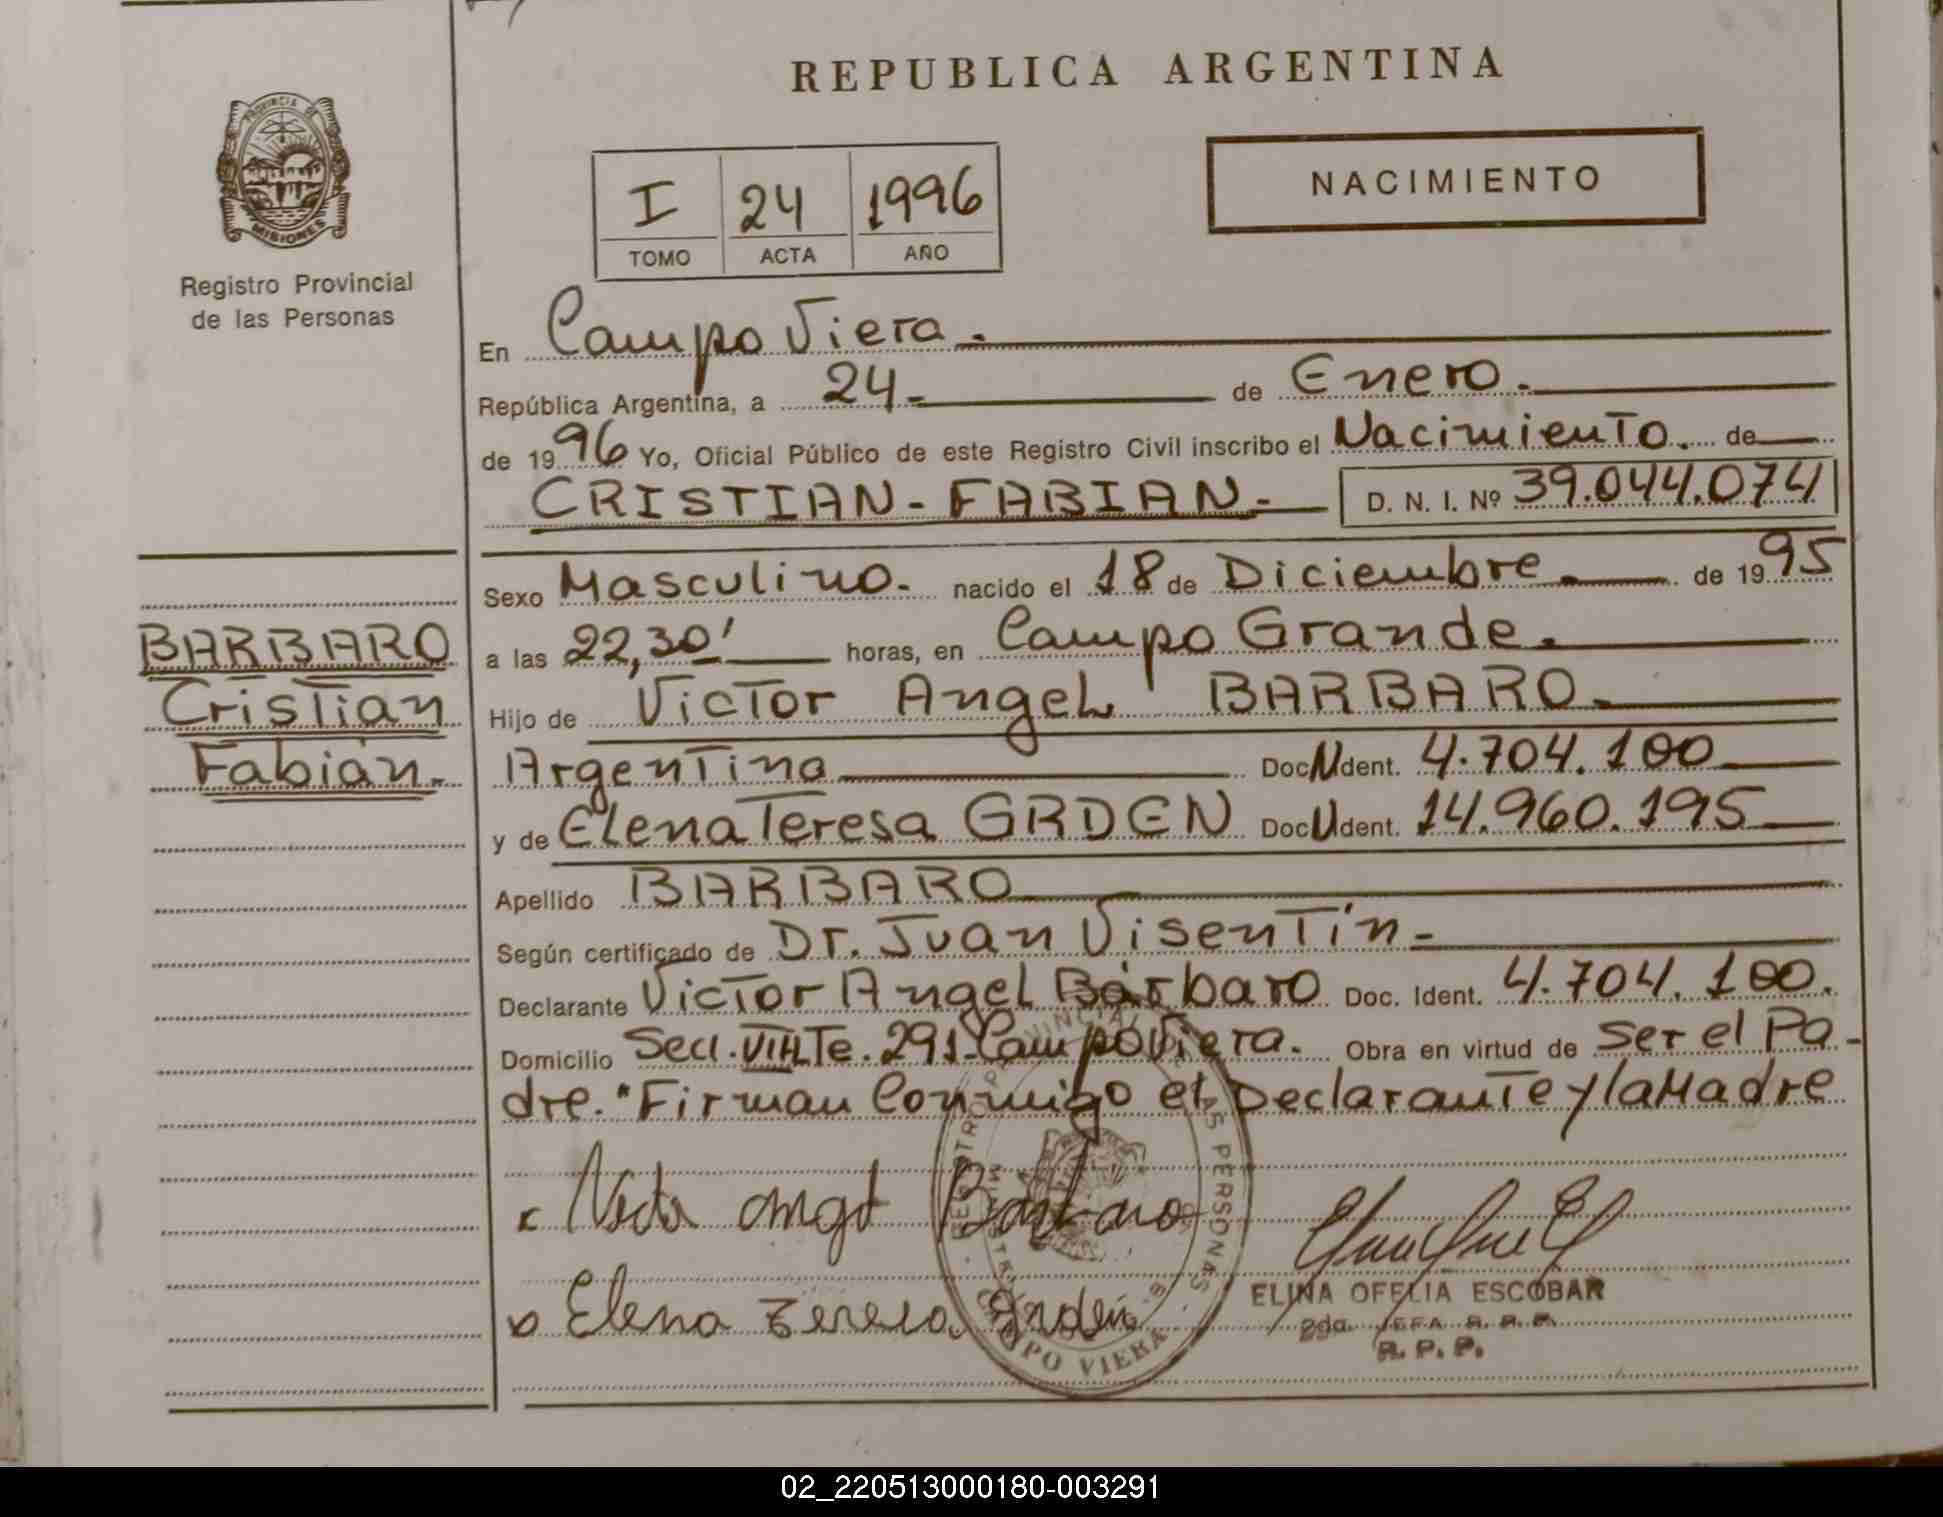 REPUBLICA ARGENTINA
PROVINCIA DE
MISIONES
Registro Provincial
de las Personas
NACIMIENTO
I 24 1996
TOMO ACTA AÑO
En Campo Viera.
República Argentina, a 24 de Enero.
de 1996 Yo, Oficial Público de este Registro Civil inscribo el Nacimiento. de
CRISTIAN - FABIAN - D. N. I. Nº 39.044.074
Sexo Masculino. nacido el 18 de Diciembre. de 1995
a las 22,30' horas, en Campo Grande.
Hijo de Victor Angel BARBARO.
Argentino Doc N Ident. 4.704.100
y de Elena Teresa GRDEN Doc U Ident. 14.960.195
Apellido BARBARO
Según certificado de Dr. Juan Visentín -
Declarante Victor Angel Bárbaro Doc. Ident. 4.704.100.
Domicilio Secc. VIII Lte. 291 - Campo Viera. Obra en virtud de Ser el Pa-
dre. "Firman Conmigo el Declarante y la Madre
BARBARO
Cristian
Fabián.
Barbaro
Elena Teresa Grden
ELINA OFELIA ESCOBAR
2da. JEFA
R. P. P.
PERSONAS
CAMPO VIERA
02_220513000180-003291